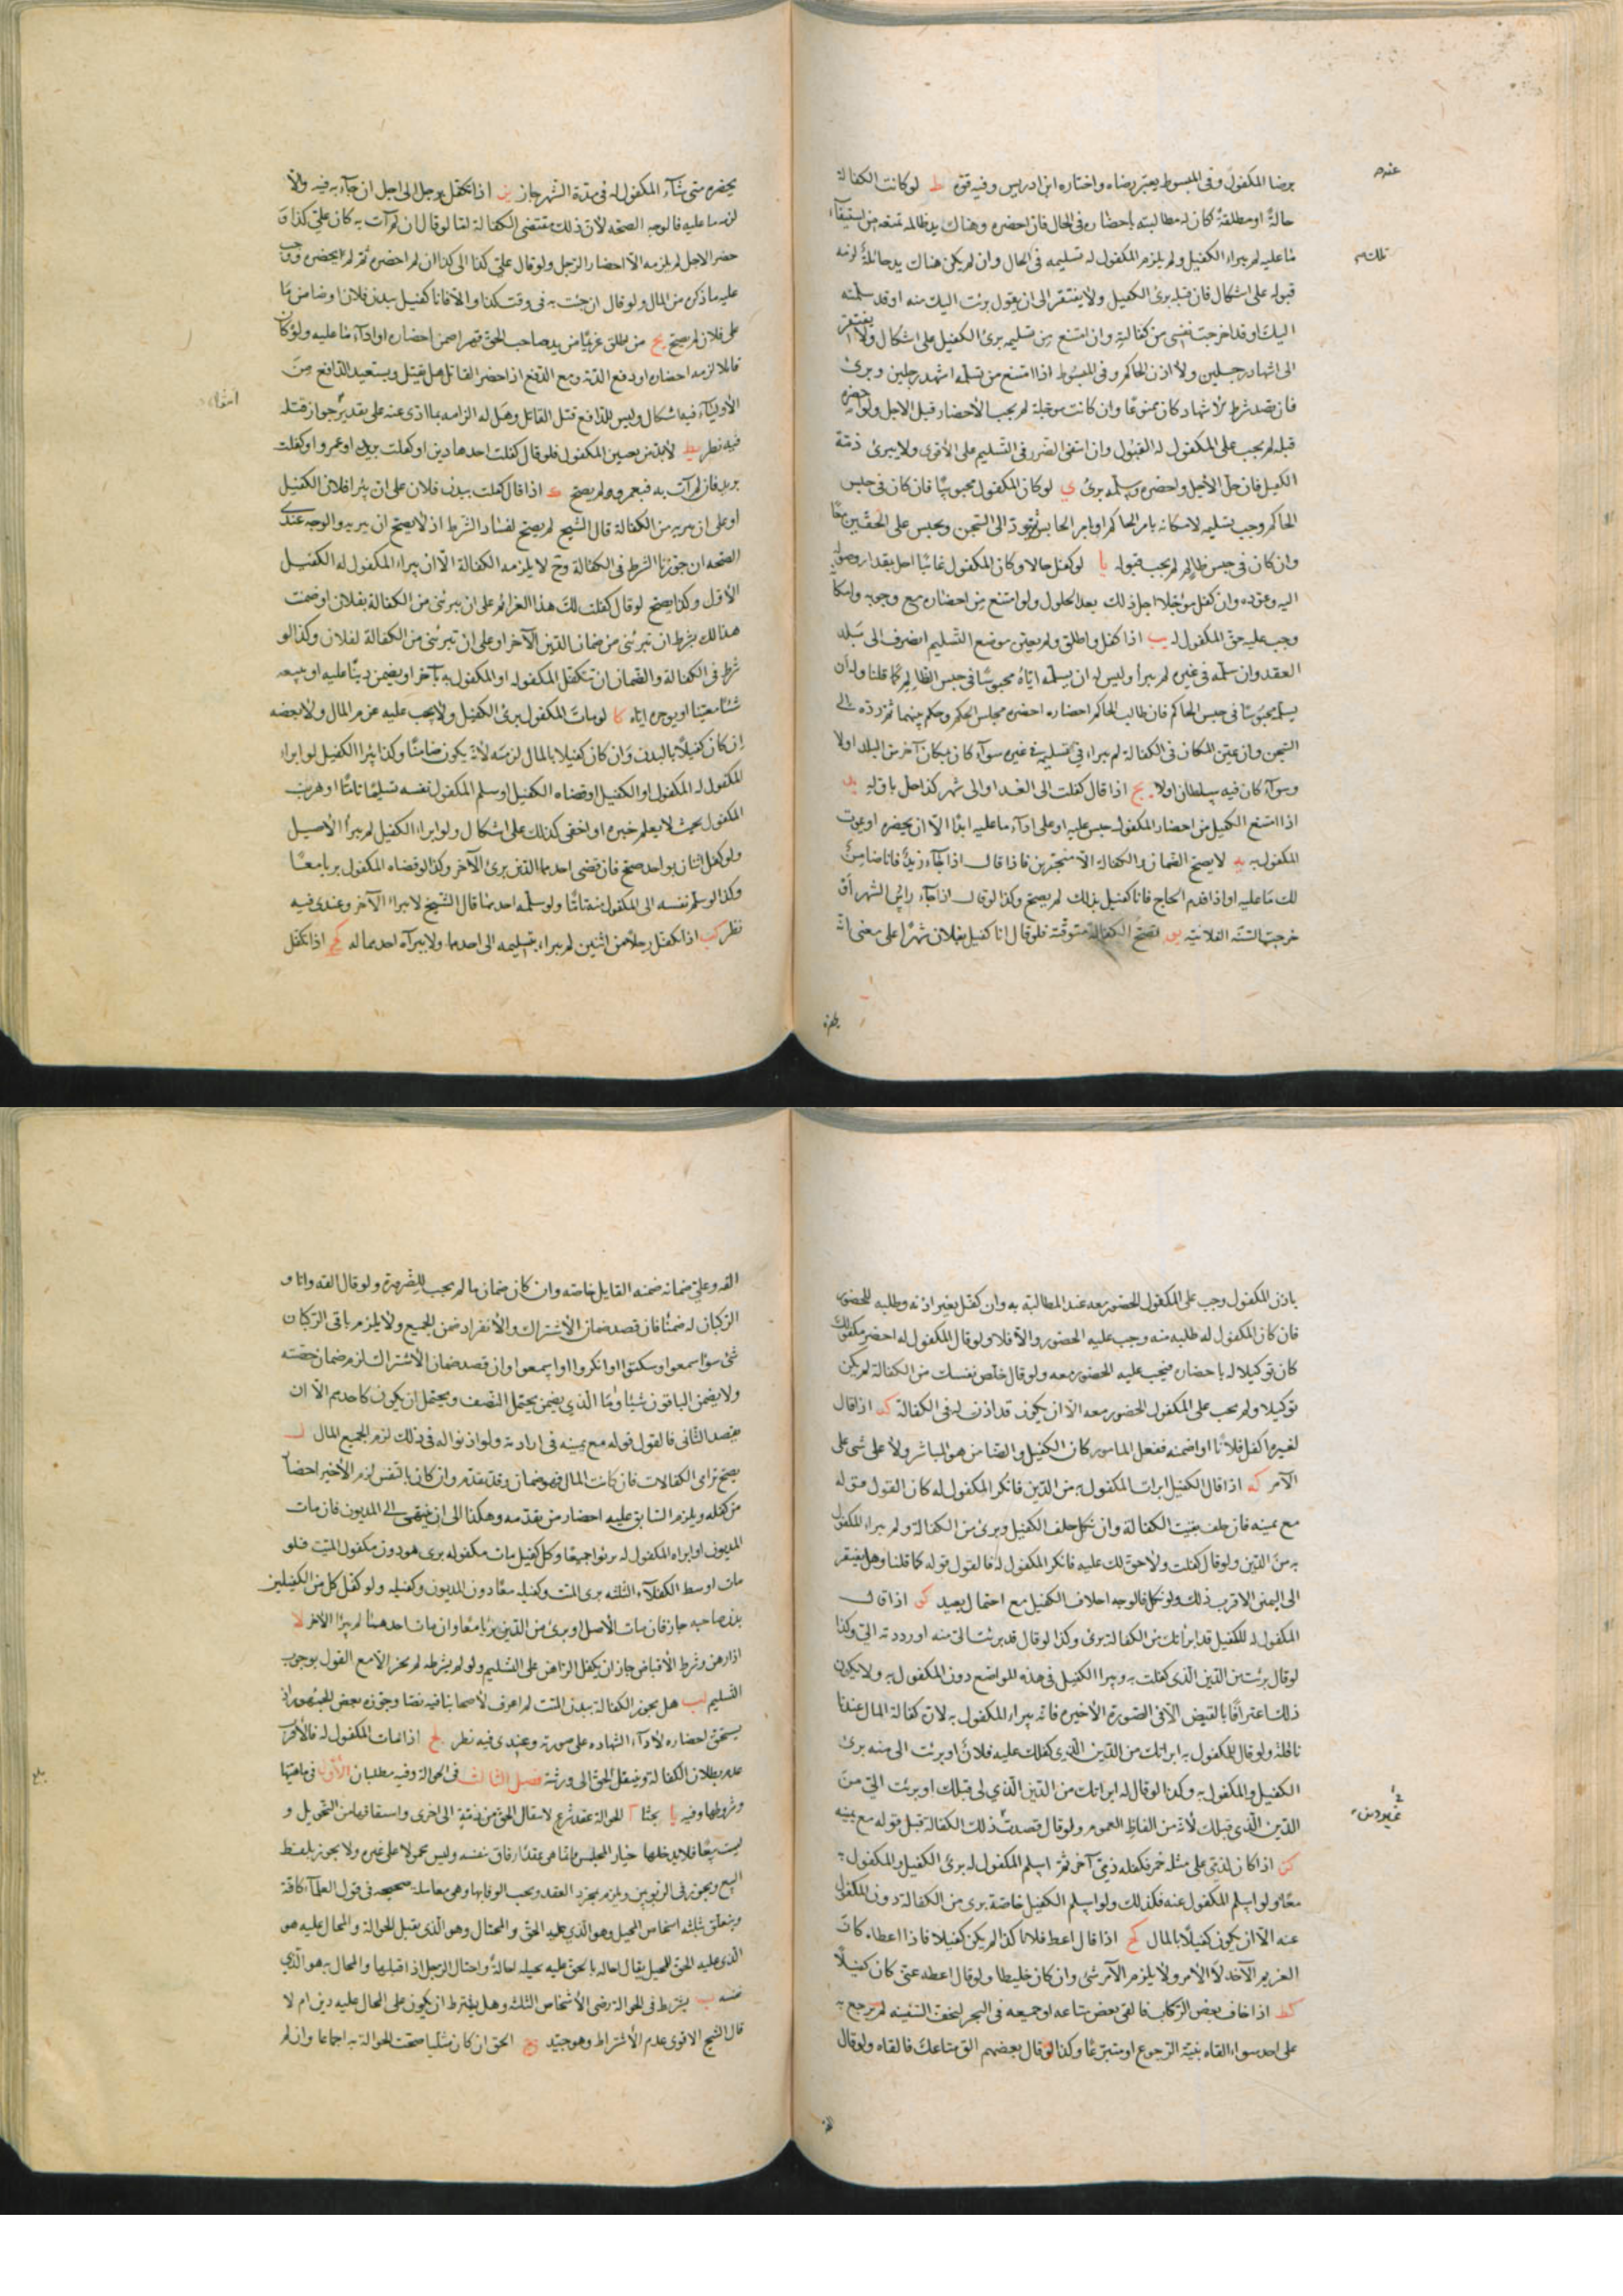 برضا المكفول وفى المبسوط يعتبر رضاه واختاره ابن ادريس وفيه قوة ط لو كانت الكفالة
حالة او مطلقة كان له مطالبته باحضاره فى الحال فان احضره وهناك يد ظالمه تمنعه من استيفاء
ما عليه لم يبراء الكفيل ولم يلزم المكفول له تسليمه فى الحال وان لم يكن هناك يد حائلة لزمه
قبوله على اشكال فان قبله برئ الكفيل ولا يفتقر الى ان يقول برئت اليك منه او قد سلمته
اليك او قد اخرجت نفسى من كفالته وان امتنع من تسليمه برئ الكفيل على اشكال ولا يفتقر
الى اشهاد رجلين ولا اذن الحاكم وفى المبسوط اذا امتنع من تسلمه اشهد رجلين وبرئ
كان ممنوعا وان كانت مؤجلة لم يجب الاحضار قبل الاجل ولو احضره
قبله لم يجب على المكفول له القبول وان انتفى الضرر فى التسليم على الاقوى ولا يبرئ ذمة
الكفيل فان حل الاجل واحضره وسلمه برئ ي لو كان المكفول محبوسا فان كان فى حبس
الحاكم وجب تسليمه لامكانه بامر الحاكم او بامر الحابس ثم يرد الى السجن ويحبس على الحقين معا
وان كان فى حبس ظالم لم يجب قبوله يا لو كفل حالا وكان المكفول غائبا اجل بقدار وصوله
اليه وعوده وان كفل مؤجلا اجل ذلك بعد الحلول ولو امتنع من احضاره مع وجوبه وامكا
وجب عليه حق المكفول له يب اذا كفل واطلق ولم يعين موضع التسليم انصرف الى بلد
العقد وان سلمه فى غيره لم يبرأ وليس له ان يسلمه اياه محبوسا فى حبس الظالم كما قلنا وله ان
يسلمه محبوسا فى حبس الحاكم فان طالب الحاكم احضاره احضره مجلس الحكم وحكم بينهما ثم رده الى
السجن وان عين المكان فى الكفالة لم يبراء فى تسليمه فى غيره سوآء كان مكان آخر من البلد اولا
وسوآء كان فيه سلطان اولا يج اذا قال كفلت الى الغد او الى شهر كذا حل باوله يد
اذا امتنع الكفيل من احضار المكفول حبس عليه او على ادآء ما عليه ابدا الا ان يحضره او يموت
المكفول به يه لا يصح الضمان والكفالة الا منجزين فاذا قال اذا جآء زيد فانا ضامن
لك ما عليه او اذا قدم الحاج فانا كفيل بذلك لم يصح وكذا لو قال اذا جآء راس الشهر او
خرجت السنة الفلانية يو تصح الكفالة متوقتة فلو قال انا كفيل بفلان شهرا على معنى انه
يحضره متى شآء المكفول له فى مدة الشهر جاز يز اذا تكفل برجل الى اجل ان جآء به فيه والا
لزمه ما عليه فالوجه الصحة لان ذلك مقتضى الكفالة اما لو قال ان لم آت به كان على كذا و
حضر الاجل لم يلزمه الا احضار الرجل ولو قال على كذا الى كذا ان لم احضره ثم لم يحضره وجب
عليه ما ذكره من المال ولو قال ان جئت به فى وقت كذا والا فانا كفيل ببدن فلان او ضامن ما
على فلان لم يصح يح من اطلق غريما من يد صاحب الحق قهرا ضمن احضاره او ادآء ما عليه ولو كان
قاتلا لزمه احضاره او دفع الدية ومع الدفع اذا احضر القاتل هل يقتل ويستعيد الدافع من
الاوليآء فيه اشكال وليس للدافع قتل القاتل وهل له الزامه بما ادى عنه على تقدير جواز قتله
فيه نظر يط لا بد من تعيين المكفول فلو قال كفلت احد هاذين او كفلت بزيد او عمرو او كفلت
بزيد فان لم آت به فبعمرو ولم يصح ك اذا قال كفلت ببدن فلان على ان يبرا فلان الكفيل
او على ان يبريه من الكفالة قال الشيخ لم يصح لفساد الشرط اذ لا يصح ان يبريه والوجه عندى
الصحة ان جوزنا الشرط فى الكفالة وح لا يلزمه الكفالة الا ان يبراء المكفول له الكفيل
الاول وكذا يصح لو قال كفلت لك هذا الغرائم على ان تبرئنى من الكفالة بفلان او ضمنت
هذا لك بشرط ان تبرئنى من ضمان الدين الآخر او على ان تبرئنى من الكفالة لفلان وكذا لو
شرط فى الكفالة والضمان ان يتكفل المكفول له او المكفول به بآخر او يضمن دينا عليه او يبيعه
شيئا معينا او يوجره اياه كا لو مات المكفول برئ الكفيل ولا يجب عليه غرم المال ولا بعضه
ان كان كفيلا بالبدن وان كان كفيلا بالمال لزمه لانه يكون ضامنا وكذا يبرا الكفيل لو ابراه
المكفول له المكفول او الكفيل او قضاه الكفيل او سلم المكفول نفسه تسليما تاما او هرب
المكفول بحيث لا يعلم خبره او اختفى كذلك على اشكال ولو ابراه الكفيل لم يبرأ الاصيل
ولو كفل اثنان بواحد صح فان قضى احدهما الدين برئ الآخر وكذا لو قضاه المكفول بريا معا
وكذا لو سلم نفسه الى المكفول منه تاما ولو سلمه احدهما قال الشيخ لا يبراء الآخر وعندى فيه
نظر كب اذا تكفل رجلا من اثنين لم يبراء بتسليمه الى احدهما ولا بابرآء احدهما له كج اذا تكفل
باذن المكفول وجب على المكفول الحضور معه عند المطالبة به وان كفل بغير اذنه وطلبه للحضور
فان كان المكفول له طلبه منه وجب عليه الحضور والا فلا ولو قال المكفول له احضر مكفولك
كان توكيلا له باحضاره فيجب عليه الحضور معه ولو قال خلص نفسك من الكفالة لم يكن
توكيلا ولم يجب على المكفول الحضور معه الا ان يكون قد اذن له فى الكفالة كد اذا قال
لغيره اكفل فلانا او اضمنه ففعل المامور كان الكفيل والضامن هو المباشر ولا على شى على
الآمر كه اذا قال الكفيل ابرات المكفول به من الدين فانكر المكفول له كان القول قوله
مع يمينه فان حلف بقيت الكفالة وان نكل حلف الكفيل وبرئ من الكفالة ولم يبراء المكفول
به من الدين ولو قال كفلت ولا حق لك عليه فانكر المكفول له فالقول قوله كما قلنا وهل يفتقر
الى اليمين الاقرب ذلك ولو نكل فالوجه احلاف الكفيل مع احتمال بعيد كو اذا قال
المكفول له للكفيل قد ابرأتك من الكفالة برئ وكذا لو قال قد برئت الى منه او رددته الى وكذا
لو قال برئت من الدين الذى كفلت به ويبرا الكفيل فى هذه المواضع دون المكفول به ولا يكون
ذلك اعترافا بالقبض الا فى الصورة الاخيرة فانه يبراء المكفول به لان كفالة المال عندنا
ناقلة ولو قال للمكفول به ابراتك من الدين الذى كفلك عليه فلان او برئت الى منه برئ
الكفيل والمكفول به وكذا لو قال له ابراتك من الدين الذى لى قبلك او برئت الى من
الدين الذى قبلك لانه من الفاظ العموم ولو قال قصدت ذلك الكفالة قبل قوله مع يمينه
كز اذا كان لذمى على مثله خمر فكفله ذمى آخر ثم اسلم المكفول له برئ الكفيل والمكفول به
معا ولو اسلم المكفول عنه فكذلك ولو اسلم الكفيل خاصة برئ من الكفالة دون المكفول
عنه الا ان يكون كفيلا بالمال كح اذا قال اعط فلانا كذا لم يكن كفيلا فاذا اعطاه كان
الغريم الآخذ لا الآمر ولا يلزم الآمر شى وان كان خليطا ولو قال اعطه عنى كان كفيلا
كط اذا خاف بعض الركاب فالقى بعض متاعه او جميعه فى البحر لتخف السفينة لم يرجع به
على احد سواء القاه بنية الرجوع او متبرعا وكذا لو قال بعضهم الق متاعك فالقاه ولو قال
القه وعلى ضمانه ضمنه القايل خاصة وان كان ضمان ما لم يجب للضرورة ولو قال القه وانا و
الركبان له ضمنا فان قصد ضمان الاشتراك والانفراد ضمن الجميع ولا يلزم باقى الركبان
شى سوآء سمعوا وسكتوا او انكروا او اسمعوا وان قصد ضمان الاشتراك لزم ضمان حصته
ولا يضمن الباقون شيئا واما الذى يضمن يحتمل النصف ويحتمل ان يكون كاحدهم الا ان
يقصد الثانى فالقول قوله مع يمينه فى ارادته ولو اذنوا له فى ذلك لزم الجميع المال ل
يصح ترامى الكفالات فان كانت المال فهو ضمان وقد تقدم وان كان بالنفس لزم الاخير احضار
من كفله ويلزم السابق عليه احضار من تقدمه وهكذا الى ان ينتهى الى المديون فان مات
المديون او ابراه المكفول له برئوا جميعا وكل كفيل مات مكفوله برى هو دون مكفول الميت فلو
مات اوسط الكفلآء الثلثه برى الميت وكفيله معا دون المديون وكفيله ولو كفل كل من الكفيلين
بدن صاحبه جاز فان مات الاصل او برئ من الدين برئا معا وان مات احدهما لم يبرا الآخر لا
اذا رهن وشرط الاقباض جاز ان يكفل الراهن على التسليم ولو لم يشرطه لم يجز الا مع القول بوجوب
التسليم لب هل يجوز الكفالة ببدن الميت لم اعرف لاصحابنا فيه نصا وجوزه بعض الجمهور اذ
يستحق احضاره لادآء الشهادة على صورته وعندى فيه نظر لج اذا مات المكفول له فالاقرب
عدم بطلان الكفالة وينتقل الحق الى ورثته فصل الثالث فى الحوالة وفيه مطلبان الاول فى ماهيتها
وشروطها وفيه يا بحثا ا الحوالة عقد شرع لانتقال الحق من ذمة الى اخرى واشتقاقها من التحويل و
ليست بيعا فلا يدخلها خيار المجلس وانما هى عقد ارفاق بنفسه وليس محمولا على غيره ولا يجوز بلفظ
البيع ويجوز فى الربويين ويلزم بمجرد العقد ويجب الوفا بها وهى معاملة صحيحه فى قول العلمآء كافة
ويتعلق بثلثه اشخاص المحيل وهو الذى عليه الحق والمحتال وهو الذى يقبل الحوالة والمحال عليه هو
الذى عليه الحق للمحيل يقال احاله بالحق عليه يحيله احالة واحتال الرجل اذا قبلها والمحال به هو الذى
نفسه ب يشترط فى الحوالة رضى الاشخاص الثلثه وهل يشترط ان يكون على المحال عليه دين ام لا
قال الشيخ الاقوى عدم الاشتراط وهو جيد ج الحق ان كان مثليا صحت الحوالة به اجماعا وان لم